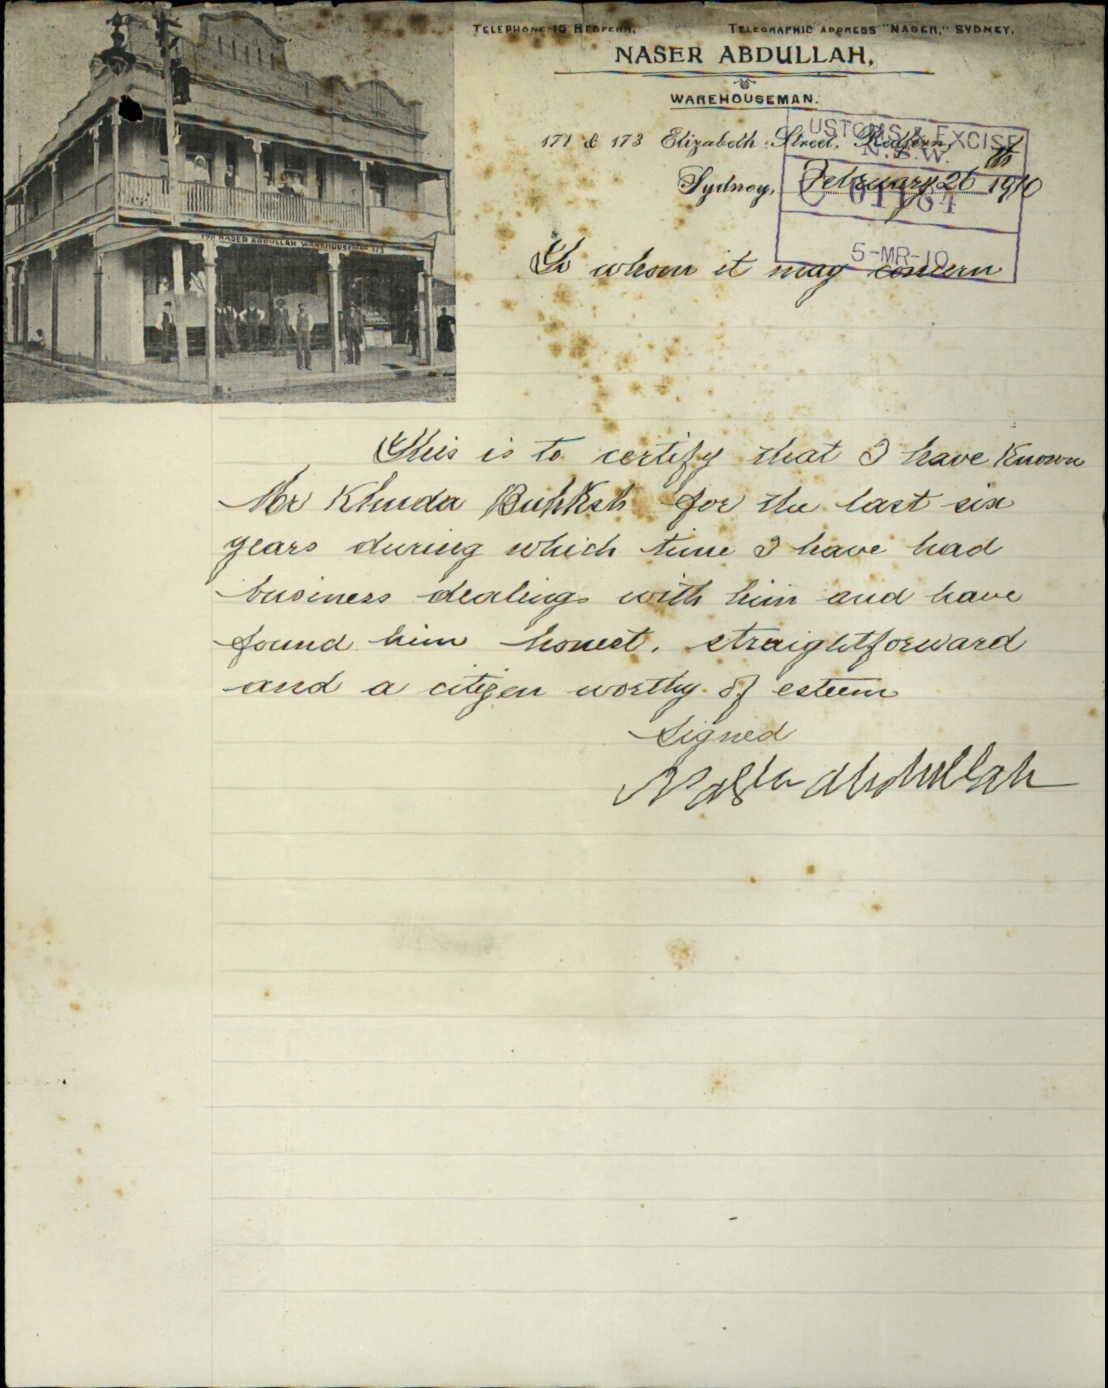 TELEPHONE 15 REDFERN.
TELEGRAPHIC ADDRESS "NASER," SYDNEY.
NASER ABDULLAH,
WAREHOUSEMAN.
171 & 173 Elizabeth Street, Redfern,
Sydney, February 26 1910
USTOMS & EXCISE
N.S.W.
5-MR-10
To whom it may concern
NASER ABDULLAH WAREHOUSEMAN 173
This is to certify that I have Known
Mr Khuda Buhksh for the last six
years during which time I have had
business dealings with him and have
found him honest, straightforward
and a citizen worthy of esteem
Signed
Naser Abdullah